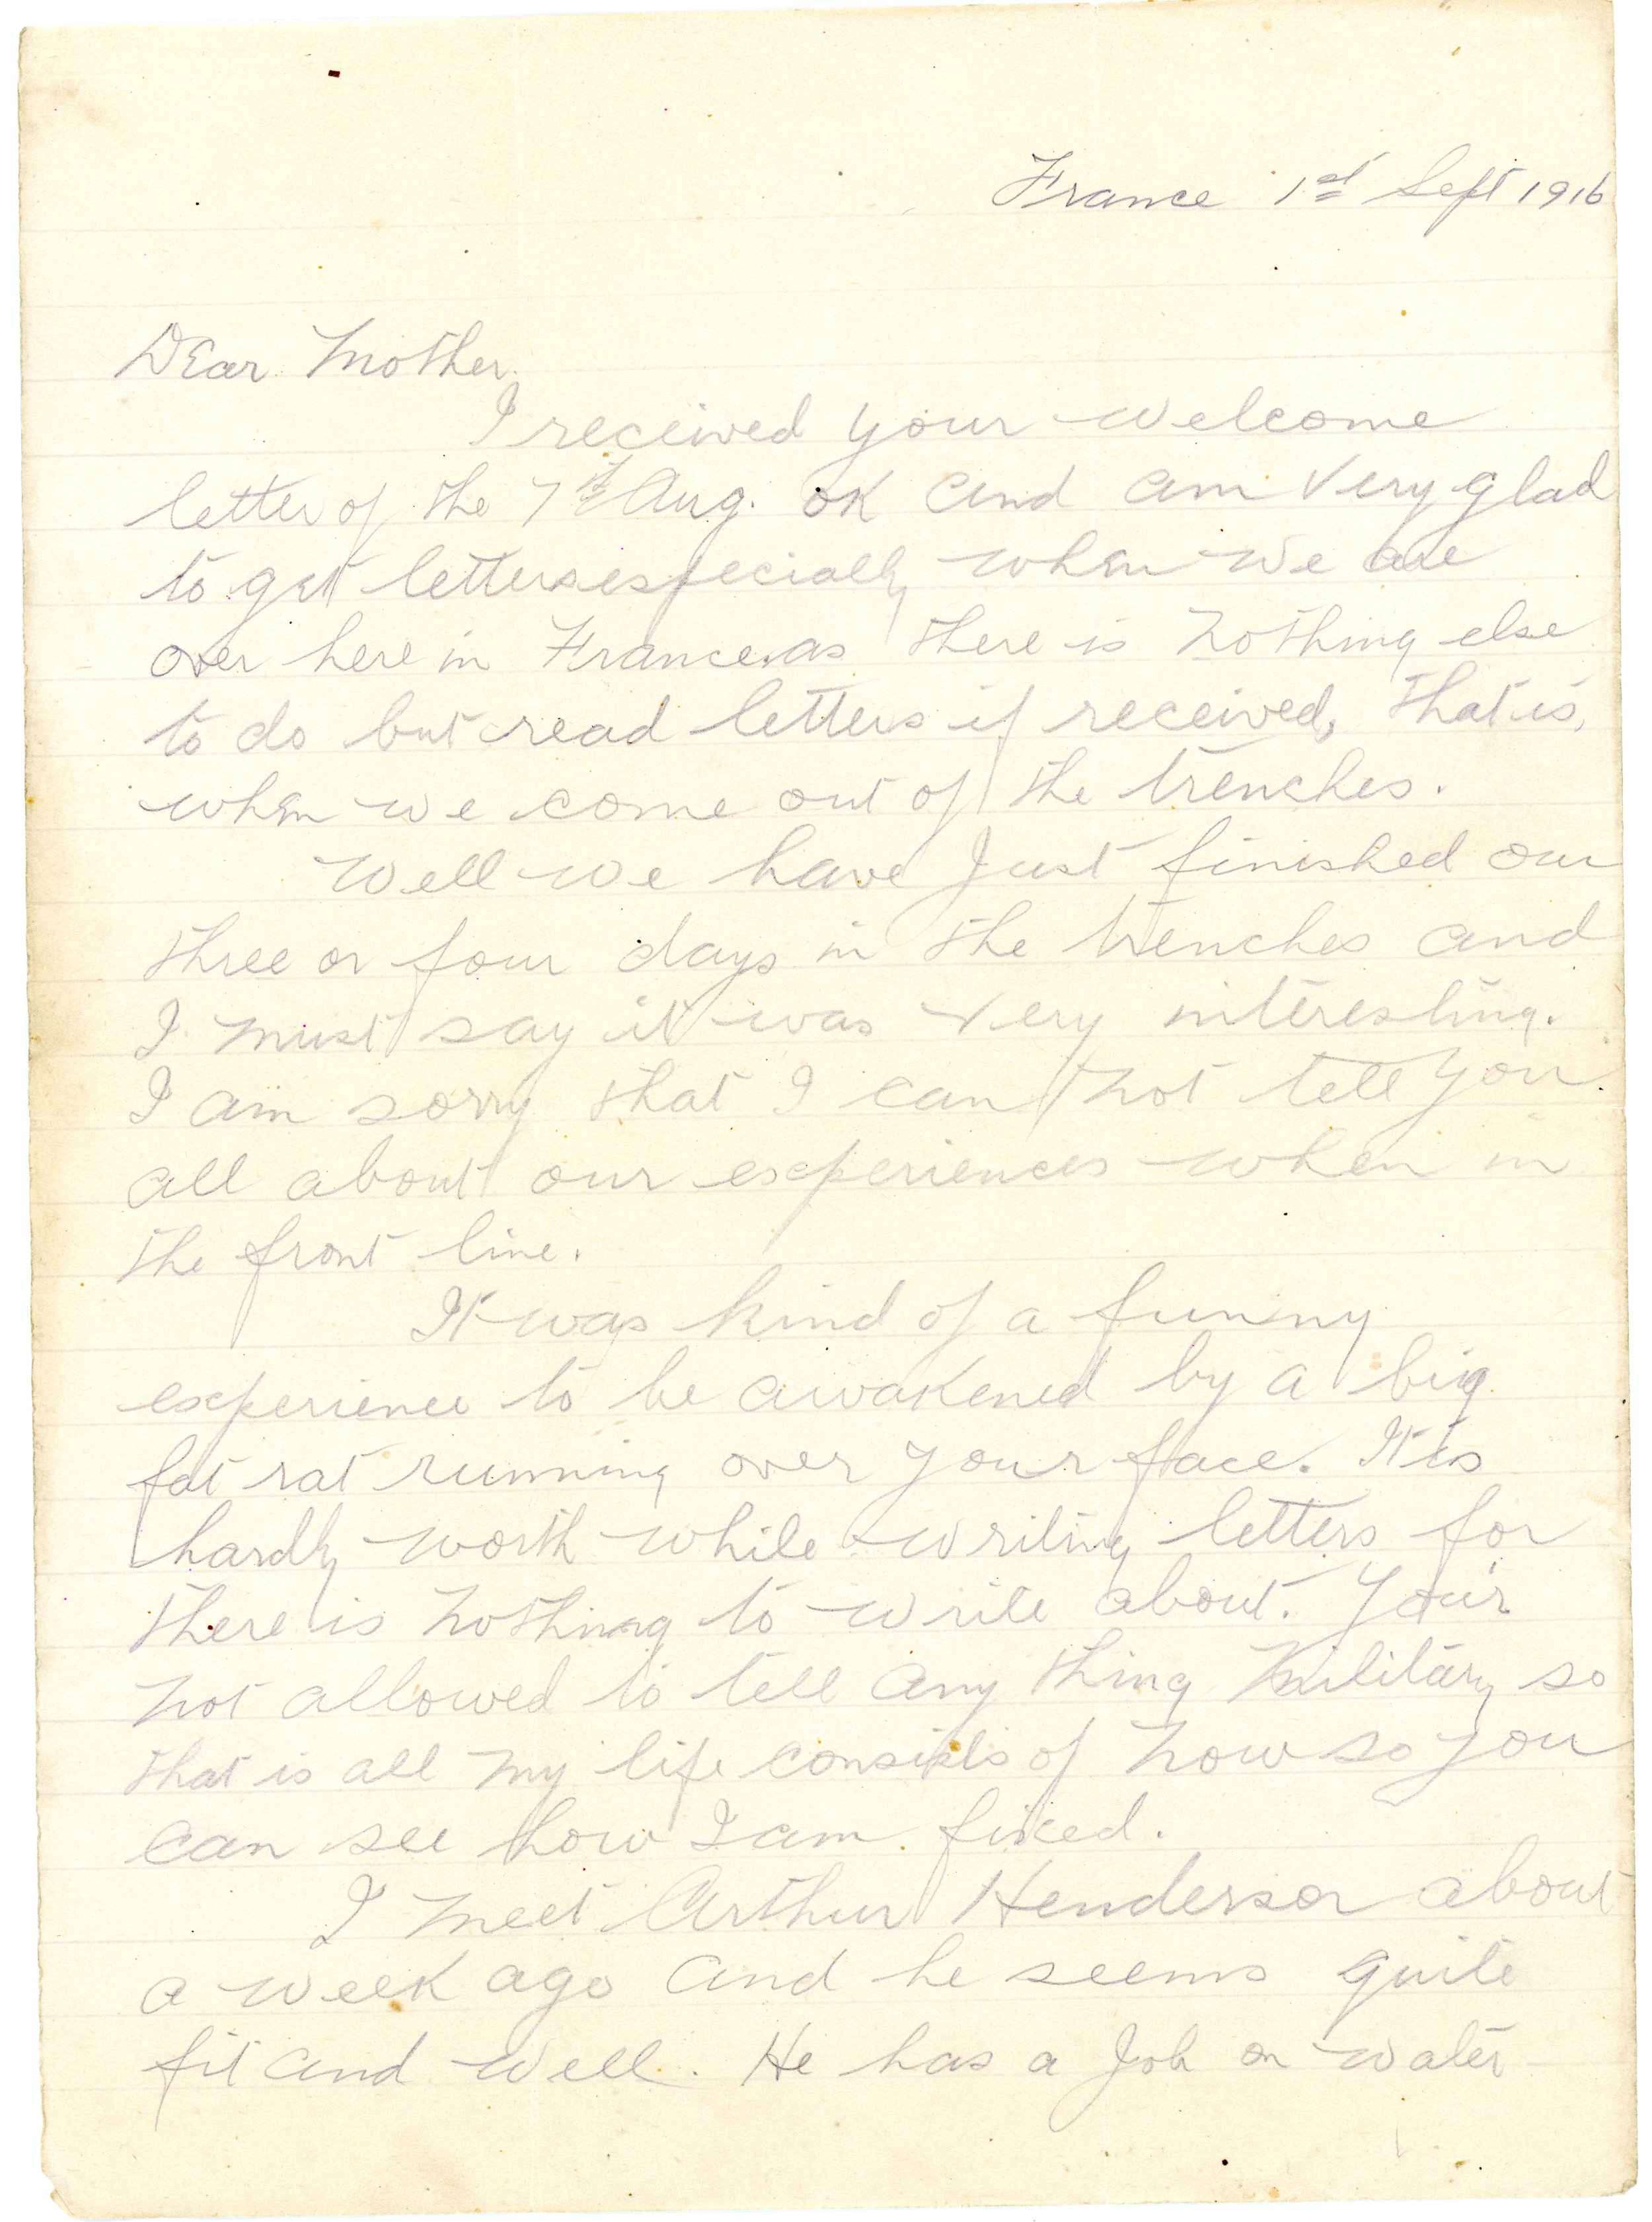 France 1st Sept 1916
Dear Mother.
I received your welcome
letter of the 7th Aug. OK and am very glad
to get letters especially when we are
over here in France, as there is nothing else
to do but read letters if received, that is,
when we come out of the trenches.
Well we have just finished our
three or four days in the trenches and
I must say it was very interesting.
I am sorry that I can not tell you
all about our experiences when in
the front line.
It was kind of a funny
experience to be awakened by a big
fat rat running over your face. It is
hardly worth while writing letters for
there is nothing to write about. Your
not allowed to tell any thing military so
that is all my life consists of now so you
can see how I am fixed.
I meet Arthur Henderson about
a week ago and he seems quite
fit and well. He has a job on water